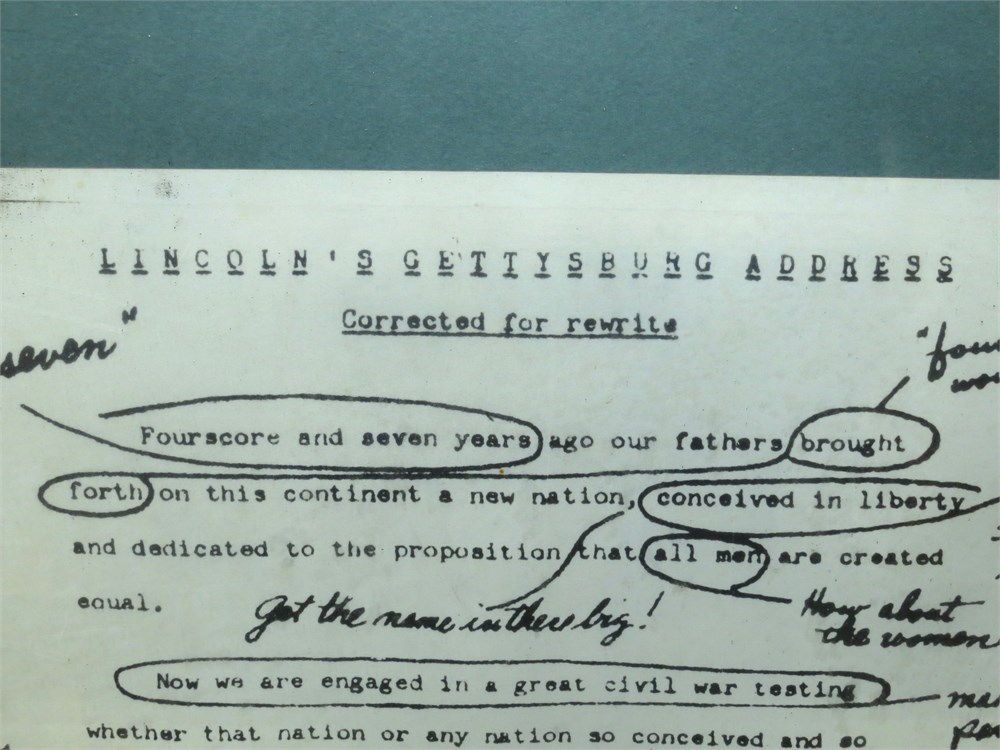 LINCOLN'S GETTYSBURG ADDRESS
Corrected for rewrite
seven"
Fourscore and seven years ago our fathers brought
forth on this continent a new nation, conceived in liberty
and dedicated to the proposition that all men are created
equal.
Get the name in there big!
How about
the women
Now we are engaged in a great civil war testing
whether that nation or any nation so conceived and so